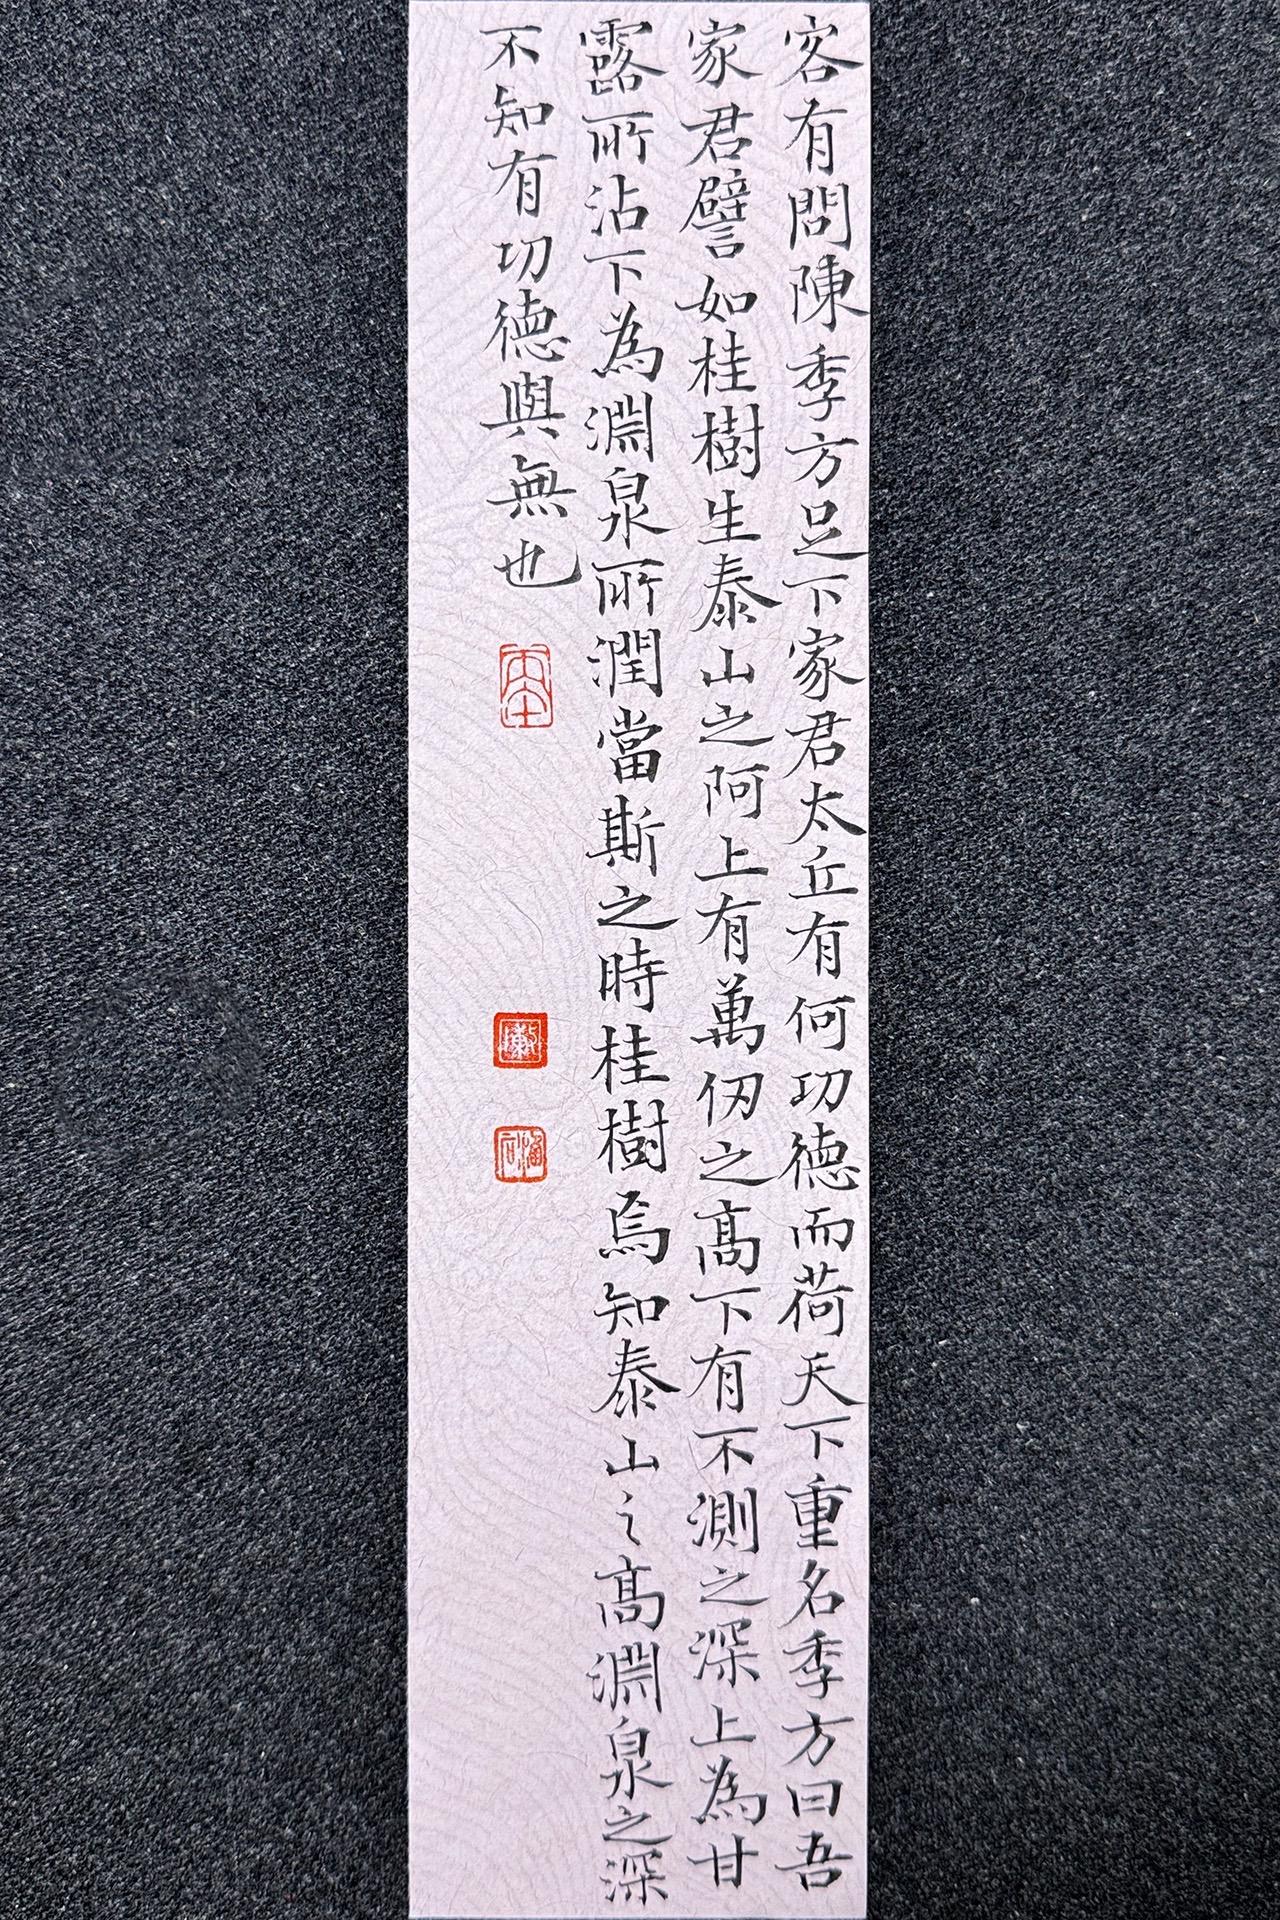 客有問陳季方足下家君太丘有何功德而荷天下重名季方曰吾
家君譬如桂樹生泰山之阿上有萬仞之高下有不測之深上為甘
露所沾下為淵泉所潤當斯之時桂樹焉知泰山之高淵泉之深
不知有功德與無也